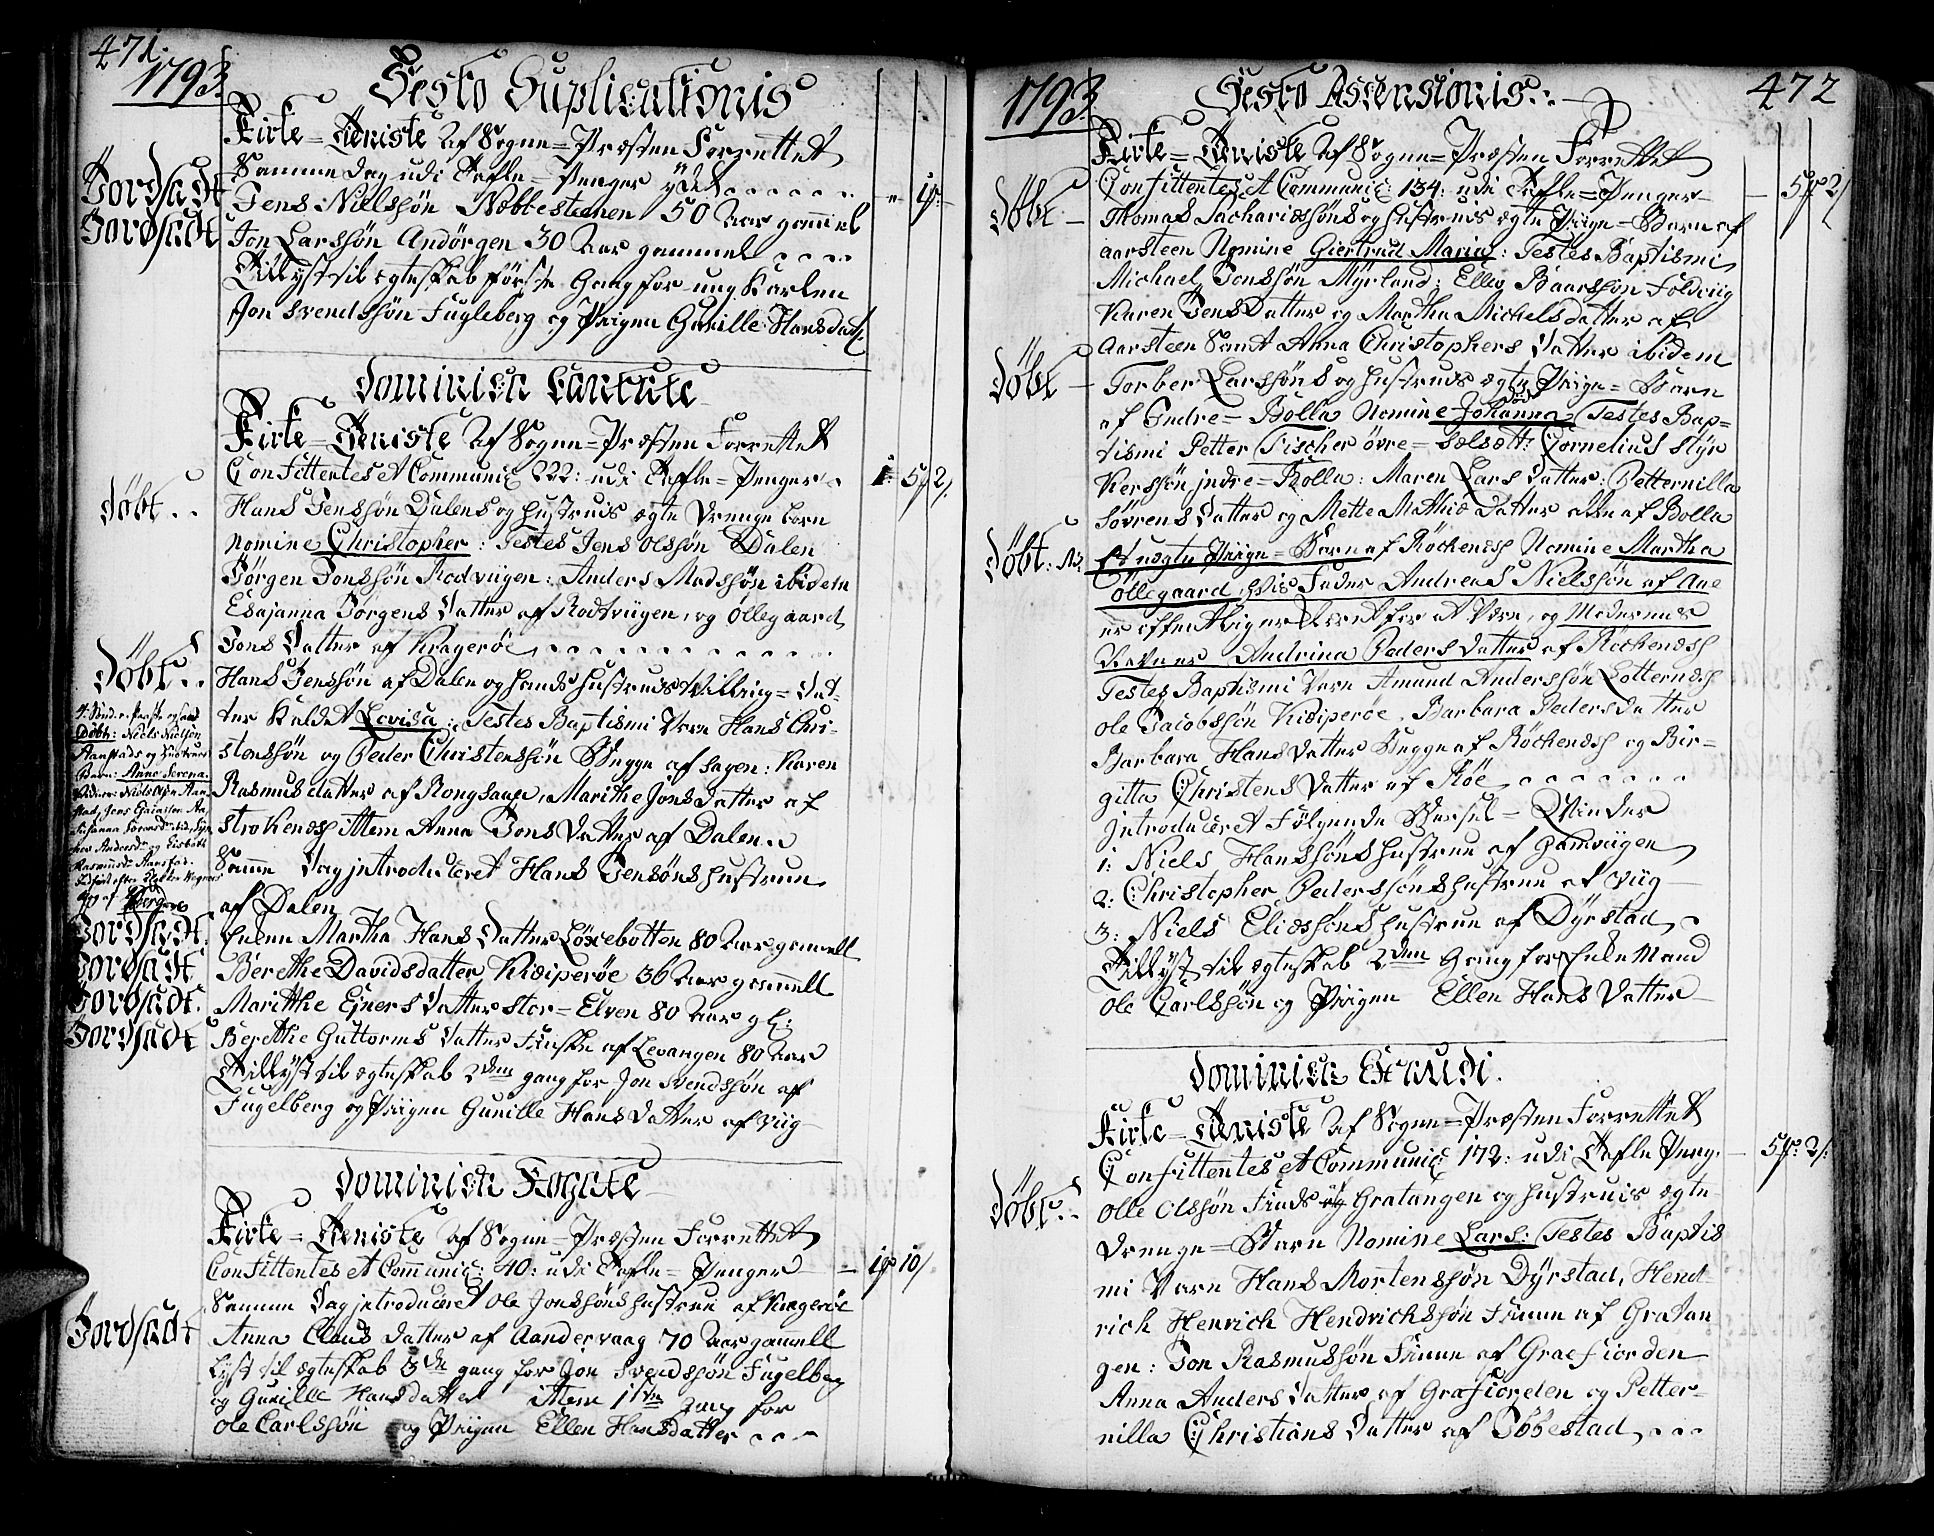 471.
1793.
Festo Suplicationis
Kirke=Tieniste Af Sogne=Præsten Forrettet
Samme Dag udi Tafle=Penger ÿdet . . . . . .
Jordsadt
Jens Nielssøn Nobbesteenen 50 Aar gamel
Jordsadt
Jon Larssøn Andørgen 30 Aar gammel . . . .
Tillyst til egteskab første Gang for ung Karlen
Jon Svendssøn Fugleberg og Piigen Gunille Hansdatt:
Dominica Cantate
Kirke=Tieniste Af Sogne=Præsten Forrettet
Confittentes et Communic: 222: udi Tafle=Penger
Døbt . .
Hans Jenssøn Dalens og hustrues egte Drenge barn
Nomine Christopher: Testes Jens Olssøn Dalen
Jørgen Jonssøn Rodviigen: Anders Madssøn ibidem
Esajanna Jørgens Datter af Rodtviigen, og Ollegaard
Jons Datter af Kragerøe . . . . . . . . . .
Døbt . .
Hans Jenssøn af Dalen og hands hustrues Tvilling=Dat-
ter Kaldet Lovisa: Testes Baptismi Vare Hans Chri-
stenssøn og Peder Christenssøn Begge af Sagen: Karen
Rasmus datter af Rongsaae, Marithe Jons Datter af
Strokenæs ittem Anna Jons Datter af Dalen
Samme Dag jntroduceret Hans Jenssøns hustrue
af Dalen
Døbt: Niels Nielsøn
Aanstads og Hustrues
Barn: Anne Serena.
Jordsadt.
Enken Martha Hans Datter Løxebotten 80 Aar gamell
Jordsadt
Berethe Davidsdatter Kiøperøe 36 Aar gamell
Jordsadt.
Marithe Ejners Datter Stor=Elven 80 Aar gl:
Jordsadt
Berethe Guttorms Datter Finske af Levangen 80 Aar
Tillyst til egteskab 2den gang for Jon Svendssøn af
Fugelberg og Piigen Gunille Hans Datter af Viig
Dominica Rogate
Kirke=Tieniste af Sogne=Præsten Forrettet
Confittentes et Communic: 40: udi Tafle=Penger
Samme Dag jntroduceret Ole Jonssøns hustrue af Kragerøe
Jordsadt
Anna Claus Datter af Aandervaag 70 Aar gamell
Lyst til egteskab 3die gang for Jon Svendssøn Fugelberg
og Gunille Hansdatter ittem 1ste gang for
Ole Carlssøn og Piigen Ellen Hansdatter . . .
1793.
Festo Ascensionis.
472
Kirke=Tieniste Af Sogne=Præsten Forrettet
Confittentes et Communic: 134: udi Tafle=Penger
Døbt
Thomas Sachariæssøns og hustrues egte Piige=Barn af
Aarsteen Nomine Giertrud Maria: Testes Baptismi
Michael Jonssøn Myrland: Ellev Baarssøn Foldviig
Karen Jens Datter og Martha Michelsdatter af
Aarsteen Samt Anna Christophers Datter ibidem
Døbt
Torber Larssøns og hustrues egte Piige=Barn
af Indre=Rolla Nomine Johanna Testes Bap-
tismi Petter Fischer øvre=Salsætt: Cornelius Styr
Kerssøn jndre=Rolla: Maren Lars Datter: Petternilla
Søvrens Datter og Mette Mathiæ Datter alle af Rolla
Døbt: N3
Et uegte Piige=Barn af Røckenæss Nomine Martha
Ollegaard, hvis Fader Andreas Nielssøn af Aae
er offentliger Læret for at Være, og Moderens
Navner Andrina Peders Datter af Røckenæss
Testes Baptismi Vare Amund Anderssøn Lotternæss
Ole Jacobssøn Kiøperøe. Barbara Pedersdatter
Barbara Hans Datter Begge af Røckenæss og Bir-
gitta Christens Datter af Røe . . . . . . .
Jntroduceret Følgende Barsel=Qvinder
1: Niels Hanssøns hustrue af Gamviigen
2: Christopher Pederssøns hustrue af Viig
3: Niels Eliæssøns hustrue af Dÿrstad
Tillyst til egteskab 2den Gang for Enke Mand
Ole Carlssøn og Piigen Ellen Hans Datter
Dominica Exaudi.
Kirke=Tieniste Af Sogne=Præsten Forrettet
Confittentes et Communic: 172: udi Tafle Peng.
Døbt . .
Olle Olssøn Finds Gratangen og hustrues egte
Drenge=Barn Nomine Lars: Testes Baptis
mi Vare Hans Mortenssøn Dÿrstad, Hend-
rich Henrich Hendrichssøn Finne af Gratan
gen: Jon Rasmussøn Finne af Graefiorden
Anna Anders Datter af Grafiorden og Petter-
nilla Christians Datter af Ibbestad . . .